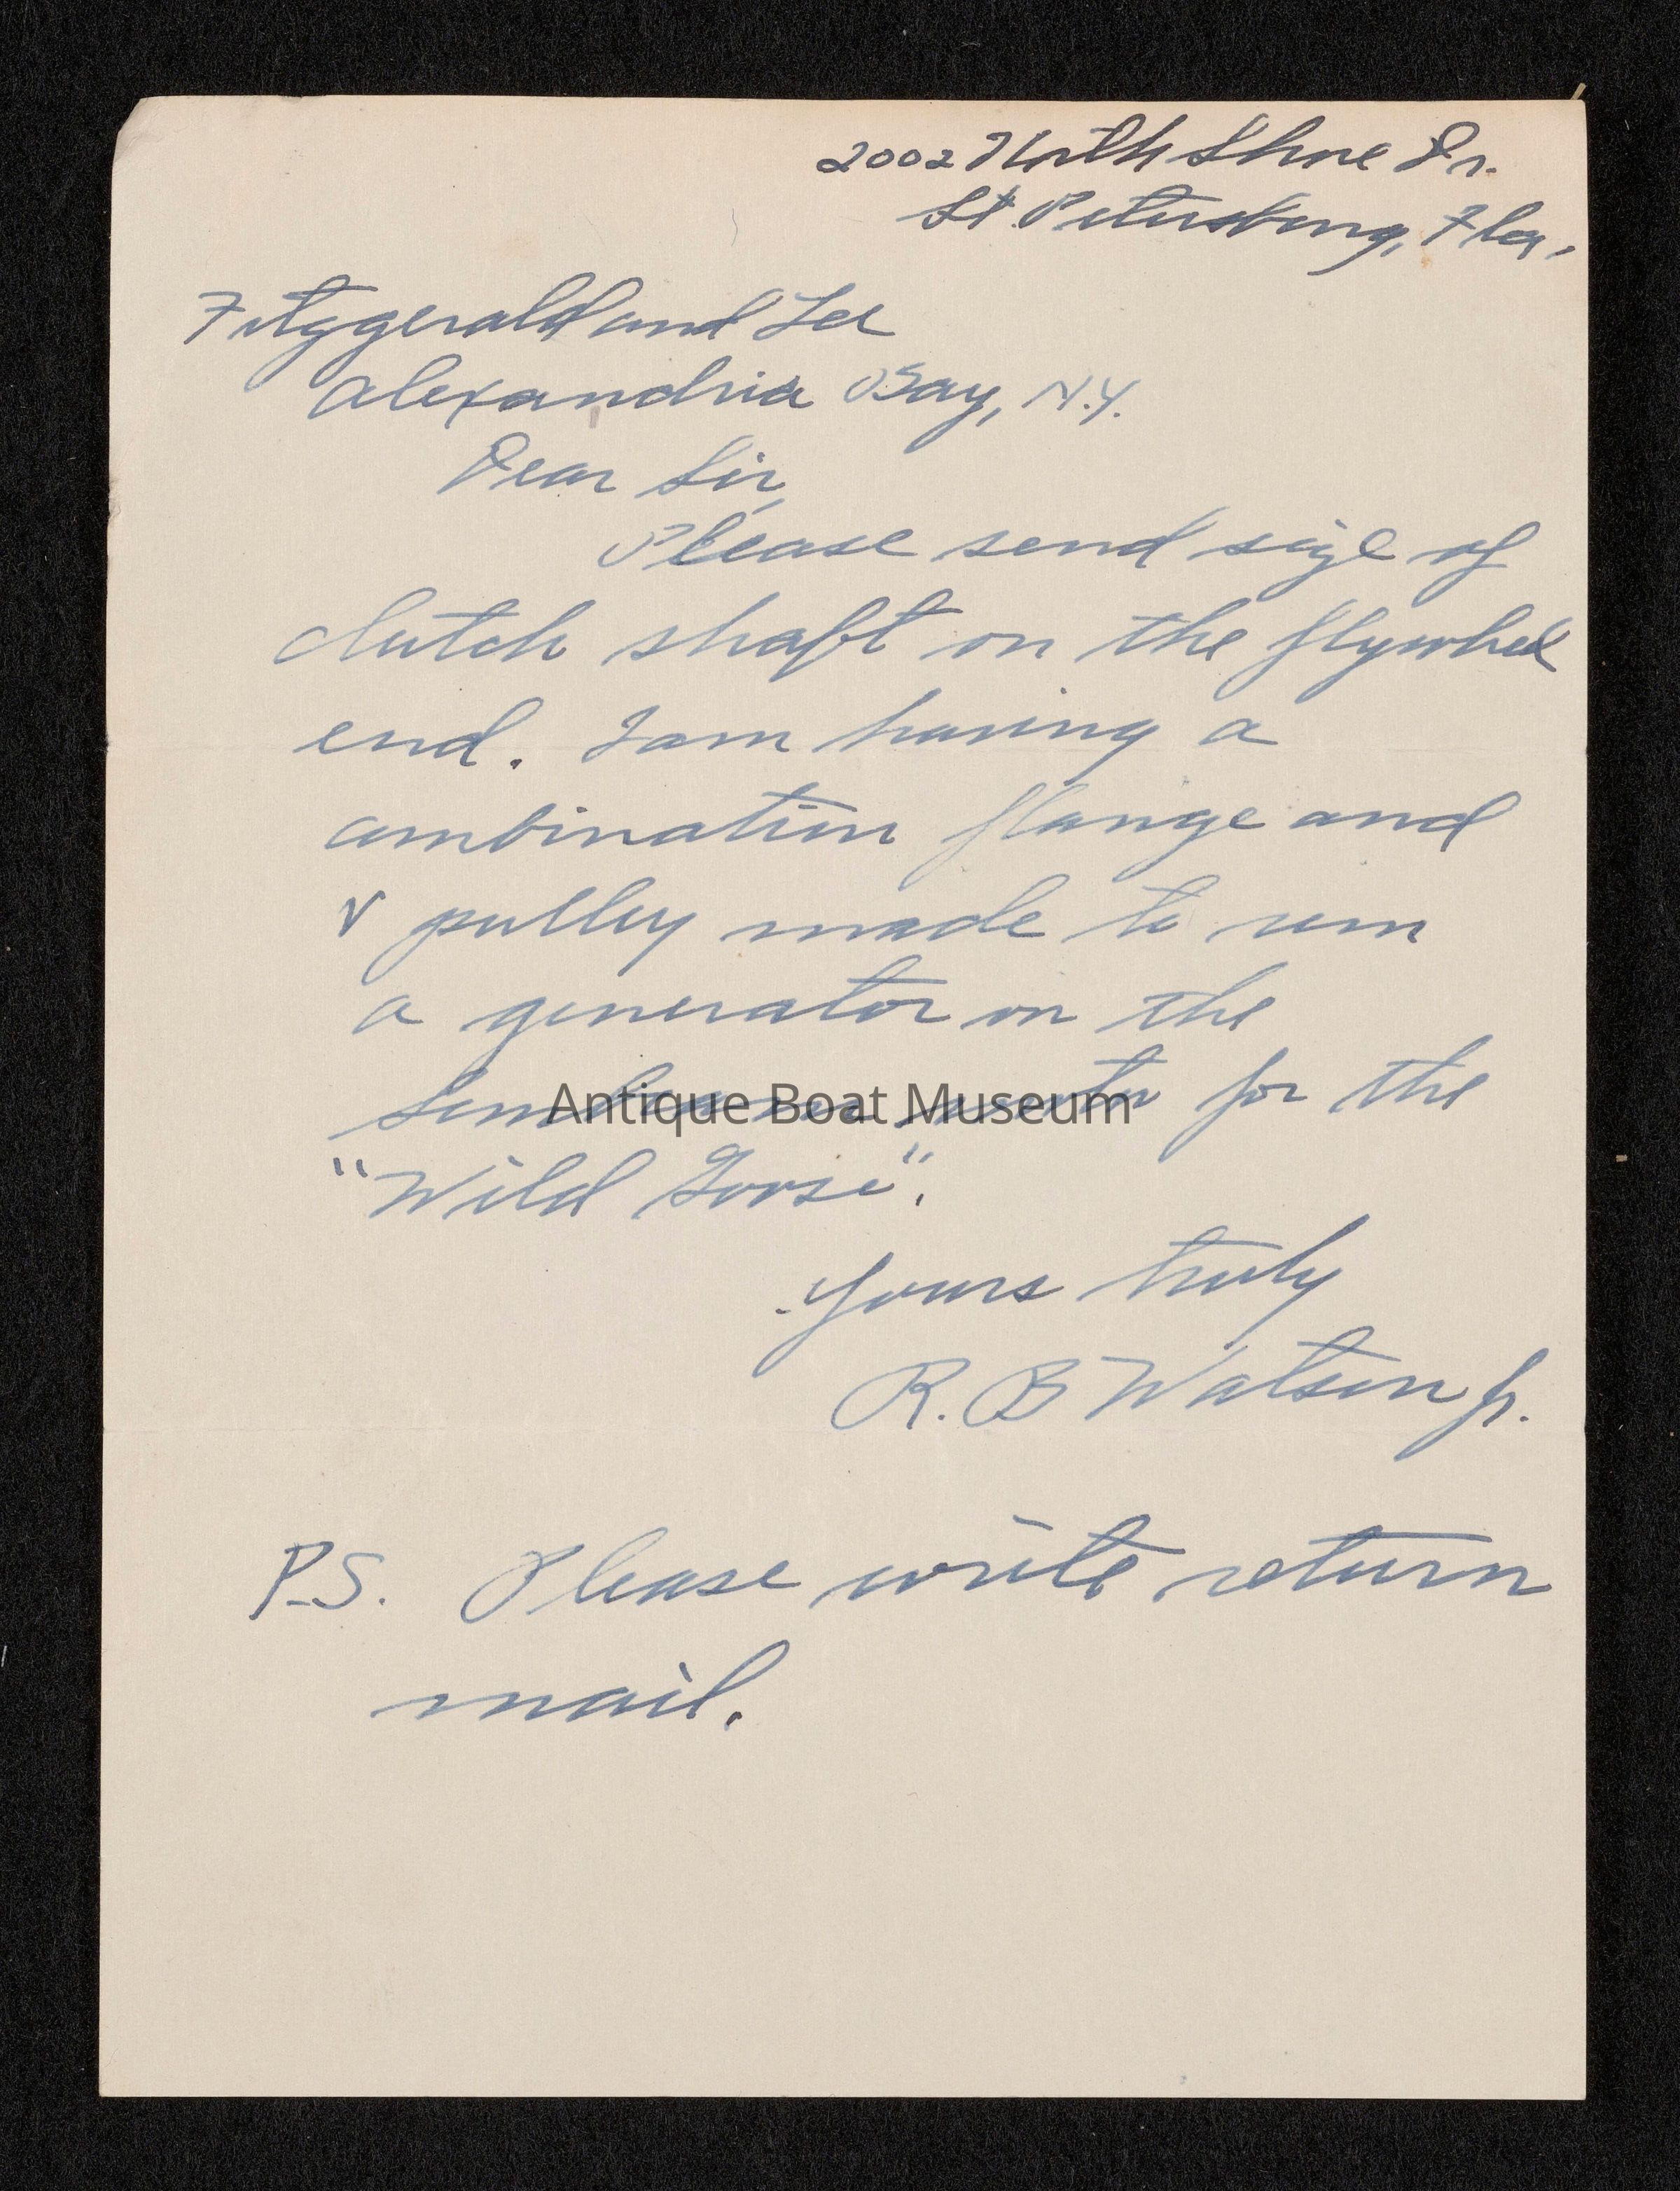 2002 North Shore Dr.
St. Petersburg, Fla.
Fitzgerald and Lee
Alexandria Bay, N.Y.
Dear Sir,
Please send size of
clutch shaft on the flywheel
end. I am having a
combination flange and
V pulley made to run
a generator on the
motor for the
Antique Boat Museum
"Wild Goose".
Yours truly
R. B Watson Jr.
P.S. Please write return
mail.